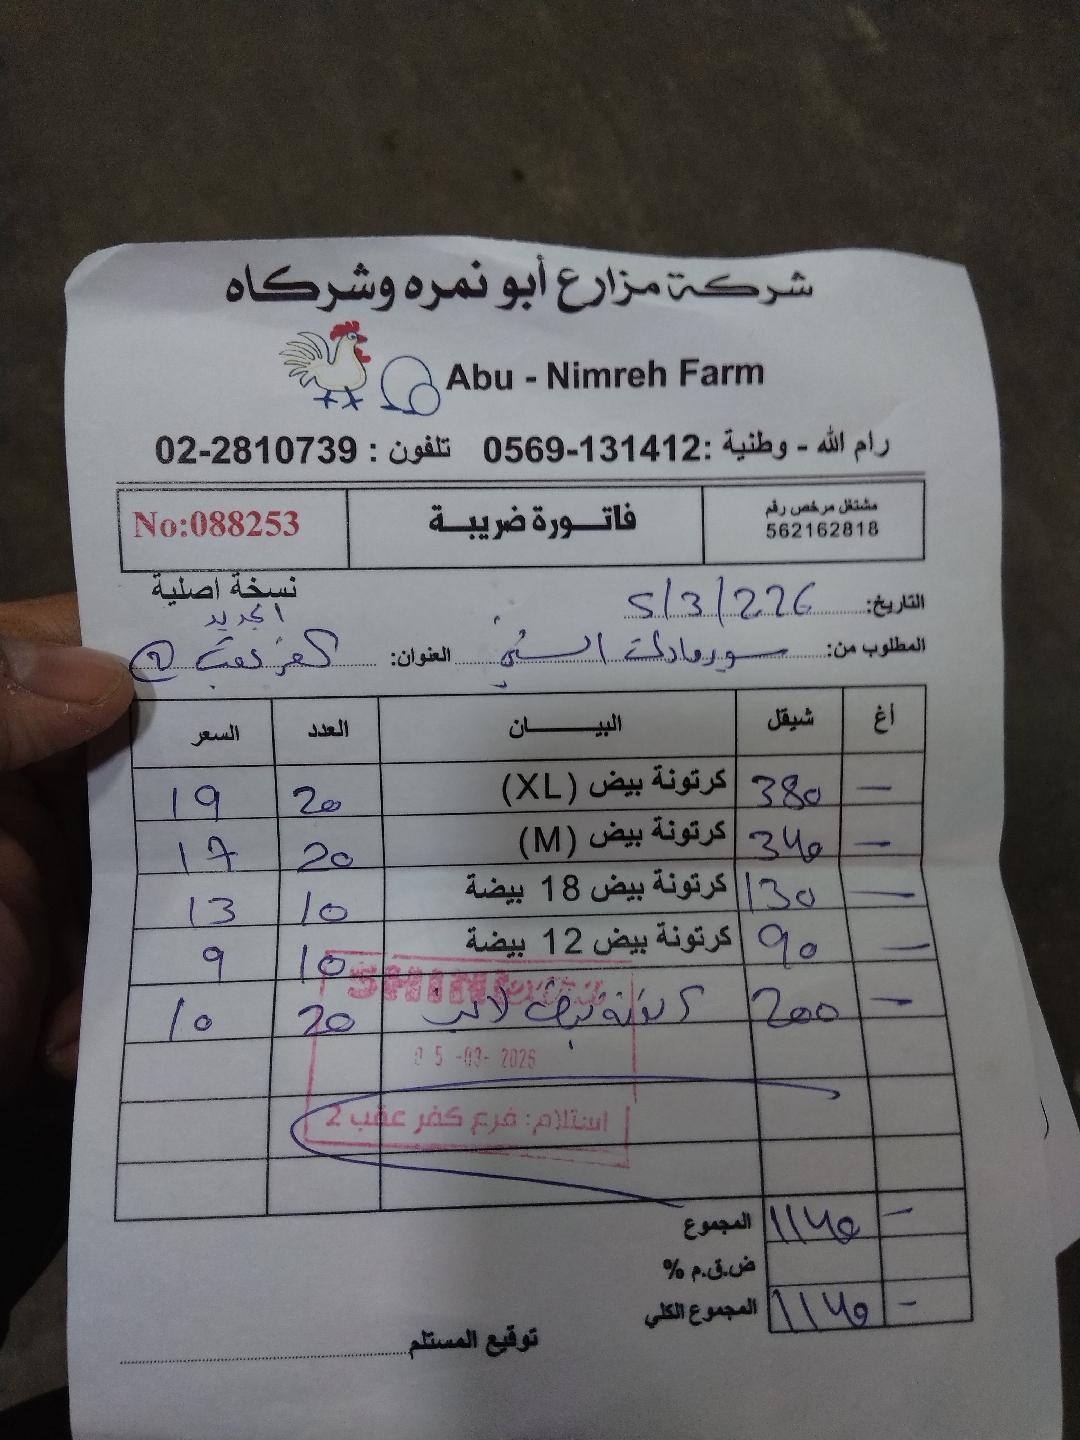 شركة مزارع أبو نمره وشركاه
Abu - Nimreh Farm
رام الله - وطنية :0569-131412 تلفون : 02-2810739
مشتغل مرخص رقم
562162818
فاتورة ضريبة
No:088253
نسخة اصلية
التاريخ: 5/3/226
الجديد
المطلوب من: سوبرماركت السني العنوان: كفر عقب 2
أغ شيقل البيان العدد السعر
— 380 كرتونة بيض (XL) 20 19
— 340 كرتونة بيض (M) 20 17
— 130 كرتونة بيض 18 بيضة 10 13
— 90 كرتونة بيض 12 بيضة 10 9
— 200 20 10
SHINI
05-03-2026
استلام: فرع كفر عقب 2
المجموع 1140 —
ض.ق.م %
المجموع الكلي 1140 -
توقيع المستلم